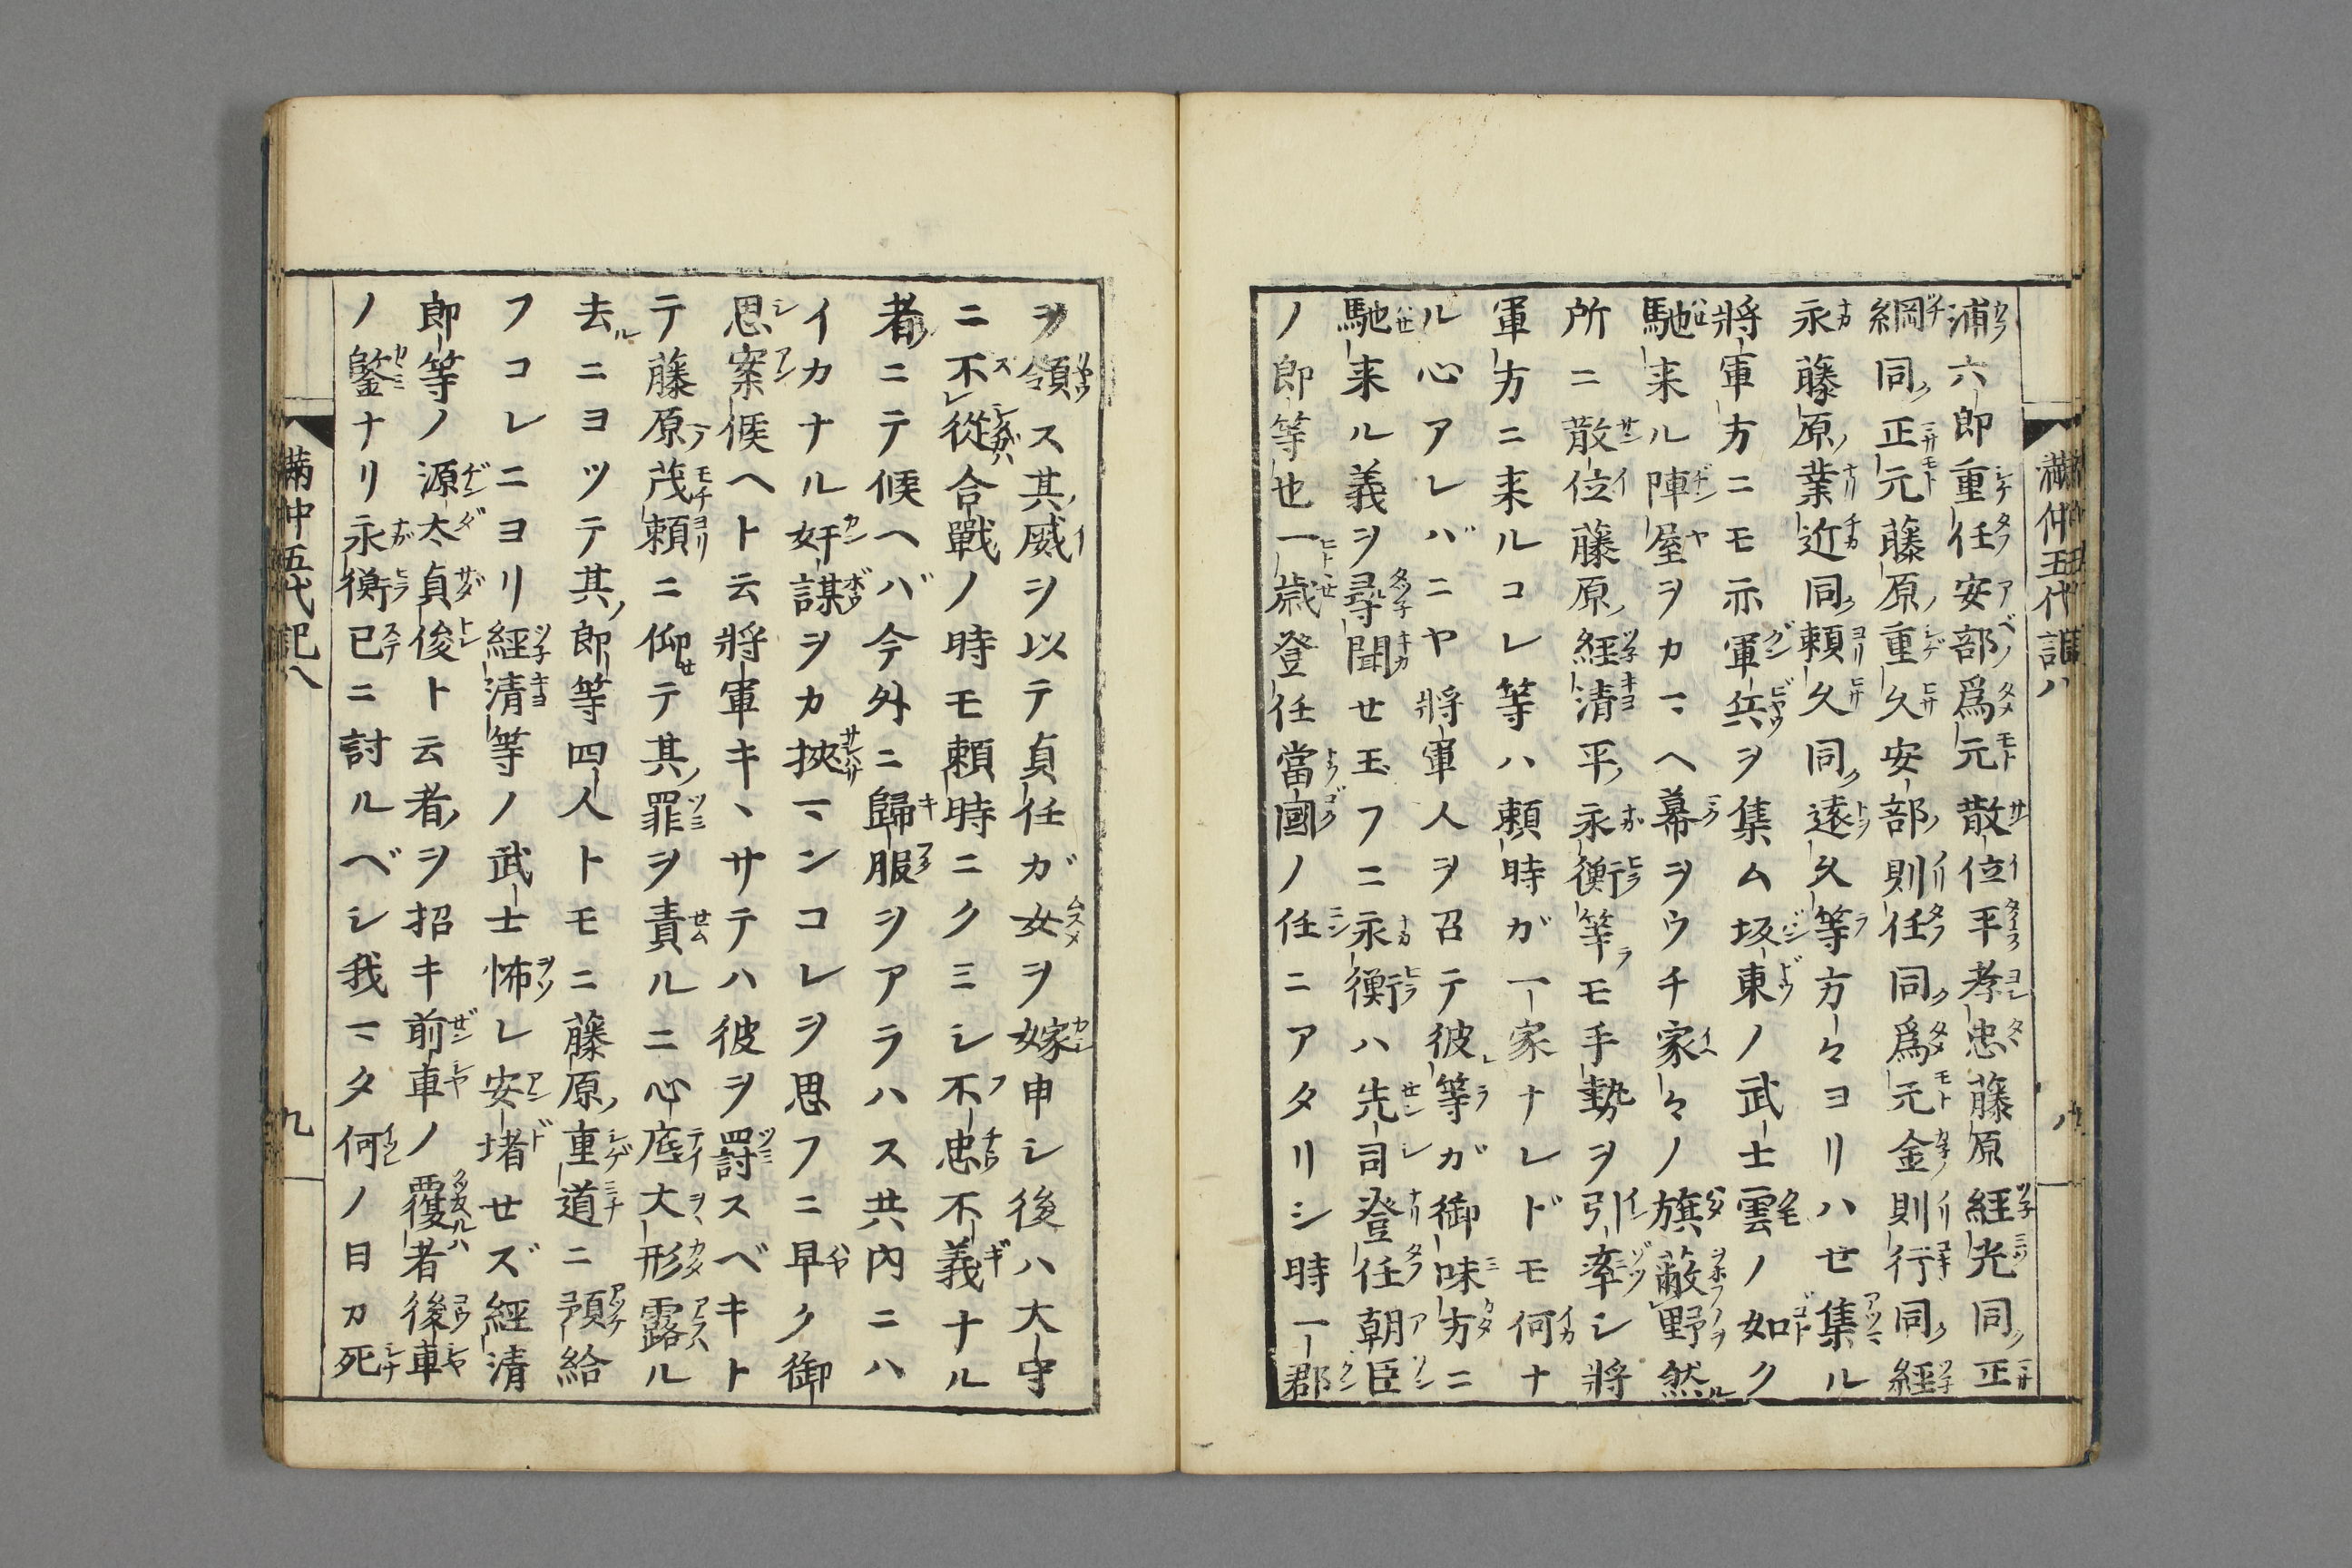 浦六郎重任安部爲元散位平孝忠藤原経光同正
綱同正元藤原重久安部則任同爲元金則行同経
永藤原業近同頼久同遠久等方々ヨリハセ集ル
將軍方ニモ亦軍兵ヲ集ム坂東ノ武士雲ノ如ク
馳来ル陣屋ヲカマヘ幕ヲウチ家々ノ旗蔽野然
所ニ散位藤原経清平永衡等モ手勢ヲ引率シ將
軍方ニ来ルコレ等ハ頼時ガ一家ナレドモ何ナ
ル心アレバニヤ將軍人ヲ召テ彼等ガ御味方ニ
馳来ル義ヲ尋聞セ玉フニ永衡ハ先司登任朝臣
ノ郎等也一歳登任當國ノ任ニアタリシ時一郡
ヲ領ス其威ヲ以テ貞任ガ女ヲ嫁申シ後ハ大守
ニ不レ從合戰ノ時モ頼時ニクミシ不忠不義ナル
者ニテ候ヘバ今外ニ歸服ヲアラハス共内ニハ
イカナル奸謀ヲカ挾マンコレヲ思フニ早ク御
思案候ヘト云將軍キヽサテハ彼ヲ罸スベキト
テ藤原茂頼ニ仰テ其罪ヲ責ルニ心底大形露ル
去ニヨツテ其郎等四人トモニ藤原重道ニ預給
フコレニヨリ經清等ノ武士怖レ安堵セズ經清
郎等ノ源太貞俊ト云者ヲ招キ前車ノ覆者後車
ノ鑒ナリ永衡已ニ討ルベシ我マタ何ノ日カ死
満仲五代記八
九